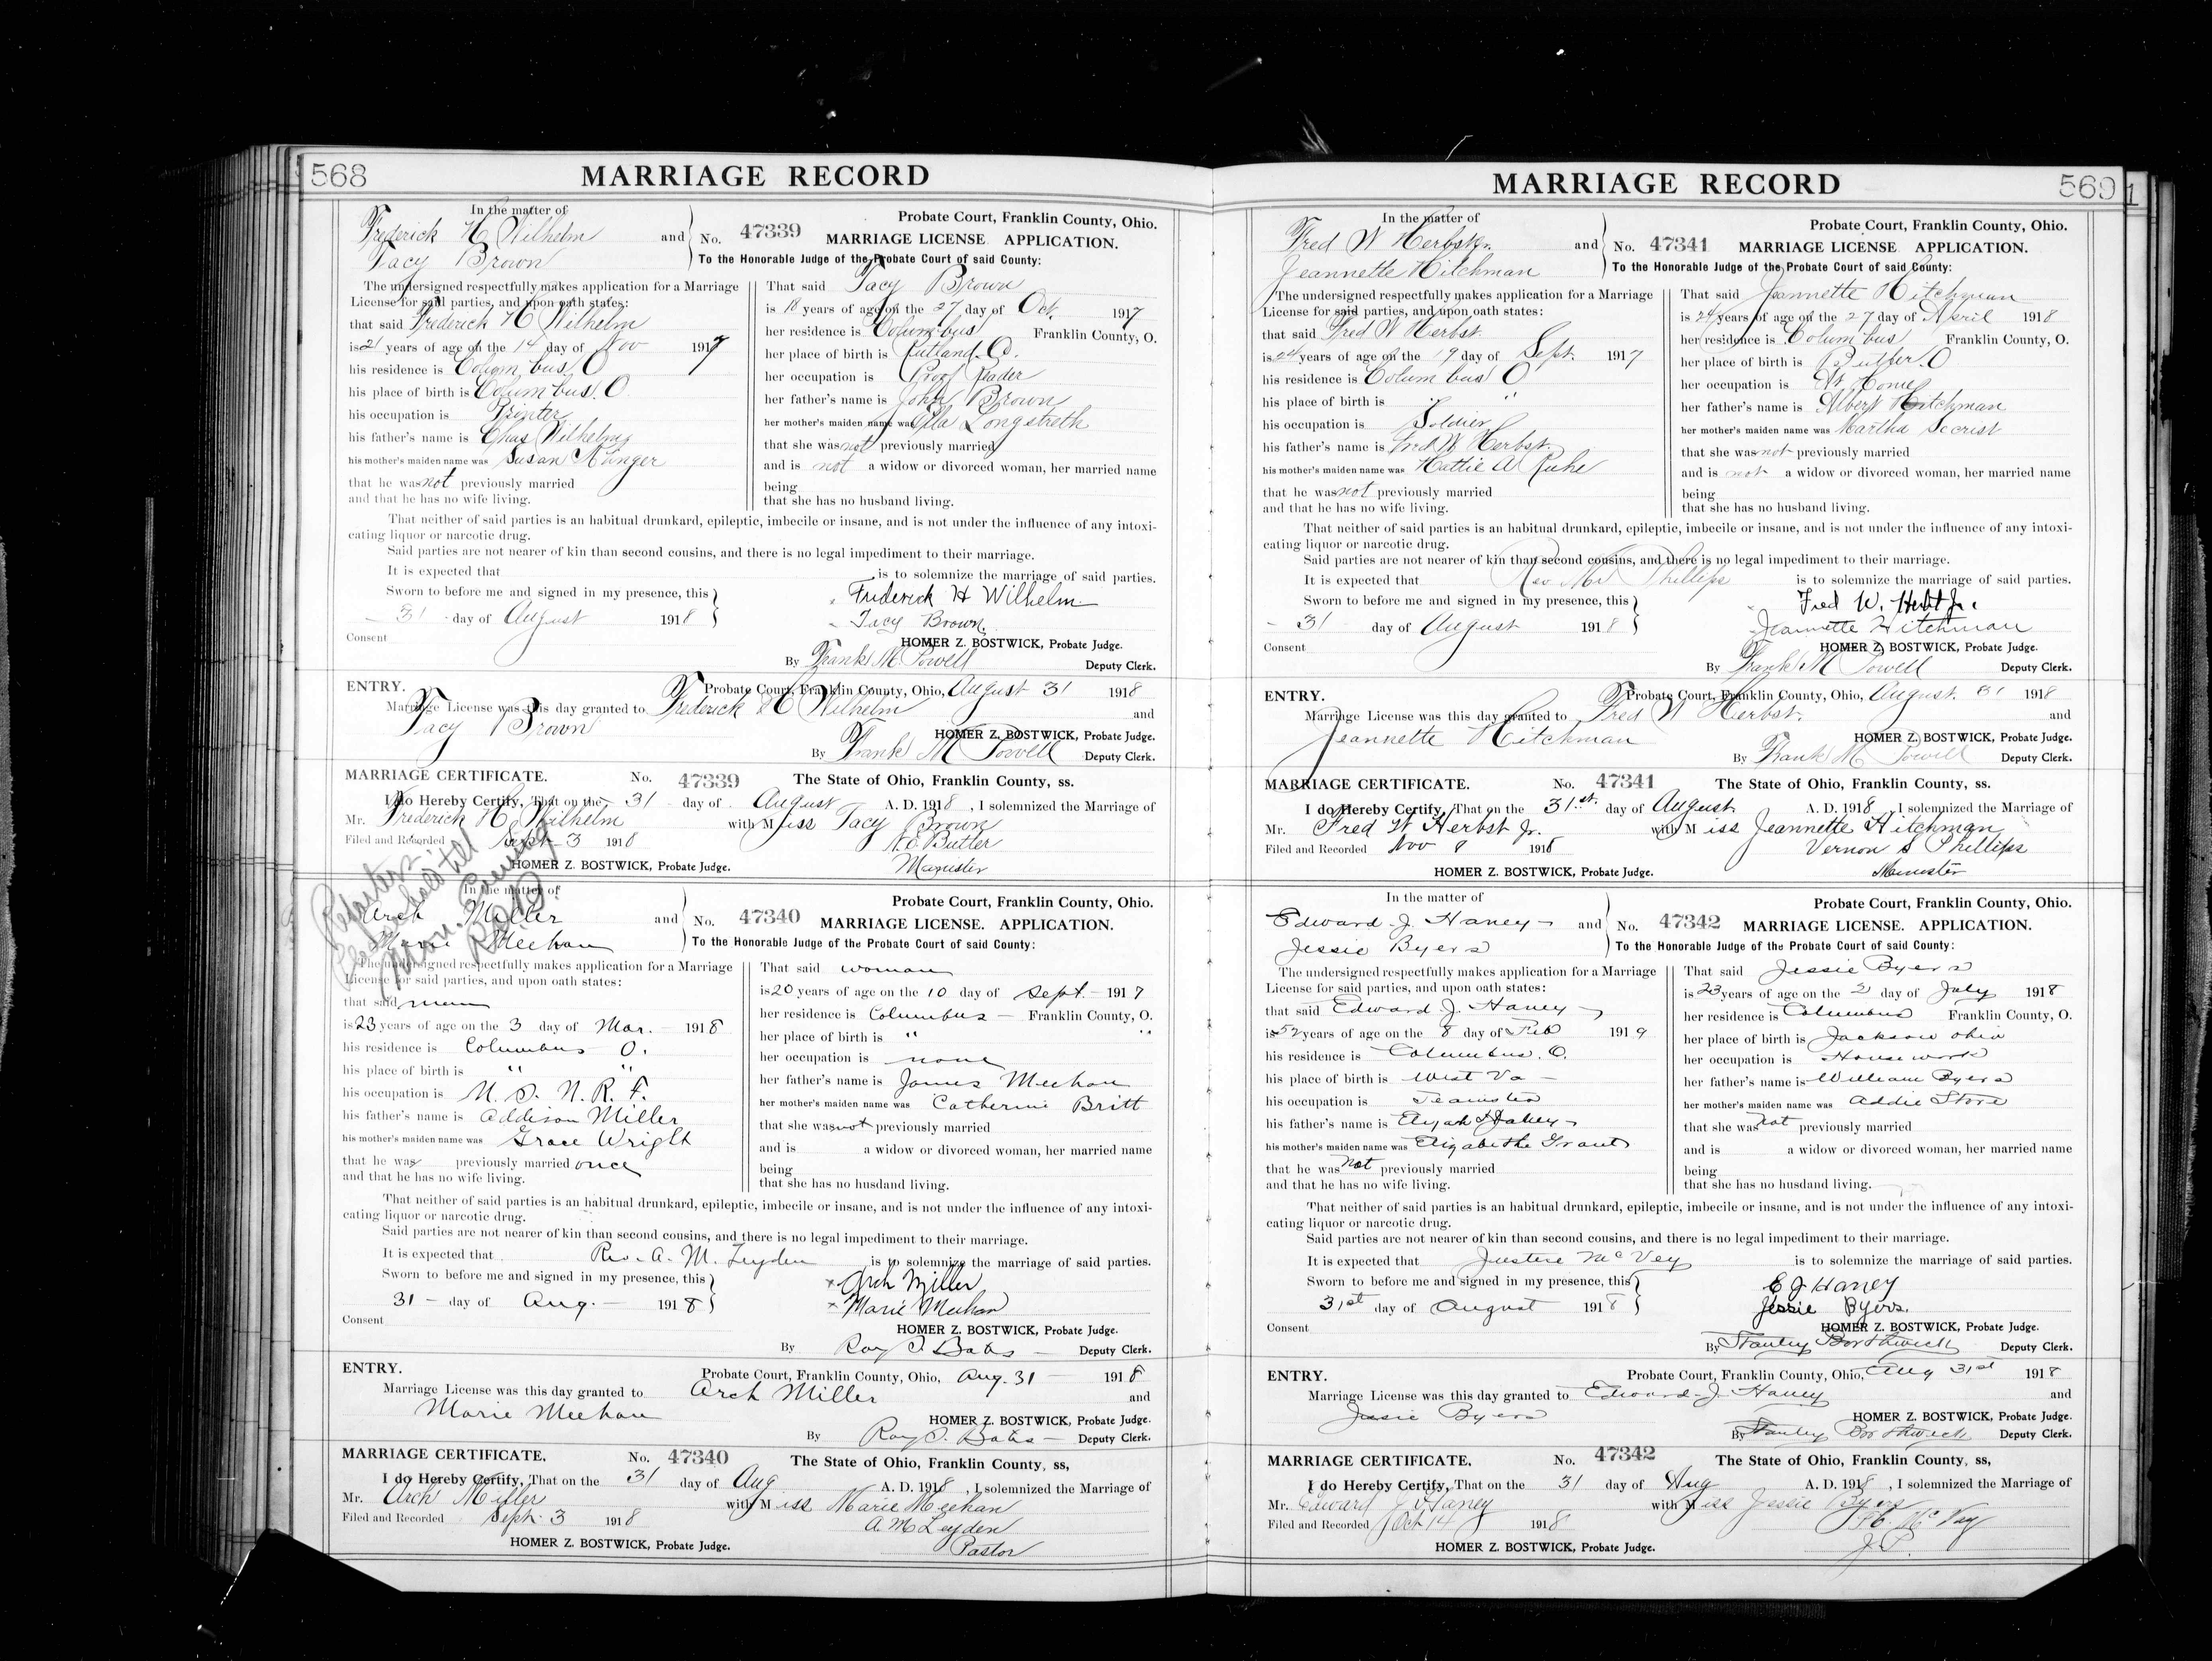 568 MARRIAGE RECORD
In the matter of
Frederick H Wilhelm and No. 47339 Probate Court, Franklin County, Ohio.
Tacy Brown MARRIAGE LICENSE APPLICATION.
To the Honorable Judge of the Probate Court of said County:
The undersigned respectfully makes application for a Marriage
License for said parties, and upon oath states:
that said Frederick H Wilhelm
is 21 years of age on the 14 day of Nov 1917
his residence is Columbus O
his place of birth is Columbus. O
his occupation is Printer
his father's name is Chas Wilhelm
his mother's maiden name was Susan
that he was not previously married
and that he has no wife living.
That said Tacy Brown
is 18 years of age on the 27 day of Oct. 1917
her residence is Columbus Franklin County, O.
her place of birth is Rutland. O.
her occupation is Proof Reader
her father's name is John Brown
her mother's maiden name was Ella Longstreth
that she was not previously married
and is not a widow or divorced woman, her married name
being
that she has no husband living.
That neither of said parties is an habitual drunkard, epileptic, imbecile or insane, and is not under the influence of any intoxi-
cating liquor or narcotic drug.
Said parties are not nearer of kin than second cousins, and there is no legal impediment to their marriage.
It is expected that is to solemnize the marriage of said parties.
Sworn to before me and signed in my presence, this Frederick H Wilhelm
31 day of August 1918 Tacy Brown.
Consent HOMER Z. BOSTWICK, Probate Judge.
By Frank M Powell Deputy Clerk.
ENTRY. Probate Court, Franklin County, Ohio, August 31 1918
Marriage License was this day granted to Frederick H Wilhelm and
Tacy Brown HOMER Z. BOSTWICK, Probate Judge.
By Frank M Powell Deputy Clerk.
MARRIAGE CERTIFICATE. No. 47339 The State of Ohio, Franklin County, ss.
I do Hereby Certify, That on the 31 day of August A. D. 1918, I solemnized the Marriage of
Mr. Frederick H. Wilhelm with Miss Tacy Brown
Filed and Recorded Sept 3 1918 Butler
HOMER Z. BOSTWICK, Probate Judge. Minister
Reporters
Please hold till
Mon. Evening
In the matter of
Arch Miller and No. 47340 Probate Court, Franklin County, Ohio.
Marie Meehan MARRIAGE LICENSE. APPLICATION.
To the Honorable Judge of the Probate Court of said County:
The undersigned respectfully makes application for a Marriage
License for said parties, and upon oath states:
that said man
is 23 years of age on the 3 day of Mar. 1918
his residence is Columbus O.
his place of birth is " "
his occupation is U. S. N. R. F.
his father's name is Addison Miller
his mother's maiden name was Grace Wright
that he was previously married once
and that he has no wife living.
That said woman
is 20 years of age on the 10 day of Sept. 1917
her residence is Columbus Franklin County, O.
her place of birth is " "
her occupation is none
her father's name is James Meehan
her mother's maiden name was Catherine Britt
that she was not previously married
and is a widow or divorced woman, her married name
being
that she has no husdand living.
That neither of said parties is an habitual drunkard, epileptic, imbecile or insane, and is not under the influence of any intoxi-
cating liquor or narcotic drug.
Said parties are not nearer of kin than second cousins, and there is no legal impediment to their marriage.
It is expected that Rev. A. M. Leyden is to solemnize the marriage of said parties.
Sworn to before me and signed in my presence, this x Arch Miller
31 day of Aug. 1918 x Marie Meehan
Consent HOMER Z. BOSTWICK, Probate Judge.
By Roy Deputy Clerk.
ENTRY. Probate Court, Franklin County, Ohio, Aug. 31 1918
Marriage License was this day granted to Arch Miller and
Marie Meehan HOMER Z. BOSTWICK, Probate Judge.
By Roy Deputy Clerk.
MARRIAGE CERTIFICATE. No. 47340 The State of Ohio, Franklin County, ss,
I do Hereby Certify, That on the 31 day of Aug A. D. 1918, I solemnized the Marriage of
Mr. Arch Miller with Miss Marie Meehan
Filed and Recorded Sept. 3 1918 A. M Leyden
HOMER Z. BOSTWICK, Probate Judge. Pastor
MARRIAGE RECORD 569
In the matter of
Fred W Herbst Jr. and No. 47341 Probate Court, Franklin County, Ohio.
Jeannette Hitchman MARRIAGE LICENSE APPLICATION.
To the Honorable Judge of the Probate Court of said County:
The undersigned respectfully makes application for a Marriage
License for said parties, and upon oath states:
that said Fred W Herbst.
is 24 years of age on the 19 day of Sept. 1917
his residence is Columbus O
his place of birth is "
his occupation is Soldier
his father's name is Fred W Herbst.
his mother's maiden name was Hattie A Ruhe
that he was not previously married
and that he has no wife living.
That said Jeannette Hitchman
is 24 years of age on the 27 day of April 1918
her residence is Columbus Franklin County, O.
her place of birth is Butler. O
her occupation is At Home
her father's name is Albert Hitchman
her mother's maiden name was Martha Secrist
that she was not previously married
and is not a widow or divorced woman, her married name
being
that she has no husband living.
That neither of said parties is an habitual drunkard, epileptic, imbecile or insane, and is not under the influence of any intoxi-
cating liquor or narcotic drug.
Said parties are not nearer of kin than second cousins, and there is no legal impediment to their marriage.
It is expected that Rev Mr Phillips is to solemnize the marriage of said parties.
Sworn to before me and signed in my presence, this Fred W. Herbst Jr.
31 day of August 1918 Jeannette Hitchman
Consent HOMER Z. BOSTWICK, Probate Judge.
By Frank M Powell Deputy Clerk.
ENTRY. Probate Court, Franklin County, Ohio, August. 31 1918
Marriage License was this day granted to Fred W Herbst. and
Jeannette Hitchman HOMER Z. BOSTWICK, Probate Judge.
By Frank M Powell Deputy Clerk.
MARRIAGE CERTIFICATE. No. 47341 The State of Ohio, Franklin County, ss.
I do Hereby Certify, That on the 31st. day of August A. D. 1918, I solemnized the Marriage of
Mr. Fred W Herbst Jr. with Miss Jeannette Hitchman
Filed and Recorded Nov 8 1918 Vernon S Phillips
HOMER Z. BOSTWICK, Probate Judge. Minister
In the matter of
Edward J. Haney and No. 47342 Probate Court, Franklin County, Ohio.
Jessie Byers MARRIAGE LICENSE. APPLICATION.
To the Honorable Judge of the Probate Court of said County:
The undersigned respectfully makes application for a Marriage
License for said parties, and upon oath states:
that said Edward J. Haney
is 52 years of age on the 8 day of Feb 1919
his residence is Columbus, O.
his place of birth is West Va
his occupation is Teamster
his father's name is Haney
his mother's maiden name was Elizabethe Grant
that he was not previously married
and that he has no wife living.
That said Jessie Byers
is 23 years of age on the 2 day of July 1918
her residence is Columbus Franklin County, O.
her place of birth is Jackson Ohio
her occupation is Housework
her father's name is William Byers
her mother's maiden name was Addie Store
that she was not previously married
and is a widow or divorced woman, her married name
being
that she has no husdand living.
That neither of said parties is an habitual drunkard, epileptic, imbecile or insane, and is not under the influence of any intoxi-
cating liquor or narcotic drug.
Said parties are not nearer of kin than second cousins, and there is no legal impediment to their marriage.
It is expected that Justice McVey is to solemnize the marriage of said parties.
Sworn to before me and signed in my presence, this E J Haney
31st day of August 1918 Jessie Byers.
Consent HOMER Z. BOSTWICK, Probate Judge.
By Stanley Borthwick Deputy Clerk.
ENTRY. Probate Court, Franklin County, Ohio, Aug 31st 1918
Marriage License was this day granted to Edward J. Haney and
Jessie Byers HOMER Z. BOSTWICK, Probate Judge.
By Stanley Borthwick Deputy Clerk.
MARRIAGE CERTIFICATE. No. 47342 The State of Ohio, Franklin County, ss,
I do Hereby Certify, That on the 31 day of Aug A. D. 1918, I solemnized the Marriage of
Mr. Edward J Haney with Miss Jessie Byers
Filed and Recorded Oct 14 1918 Mc Vay
HOMER Z. BOSTWICK, Probate Judge. J. P.